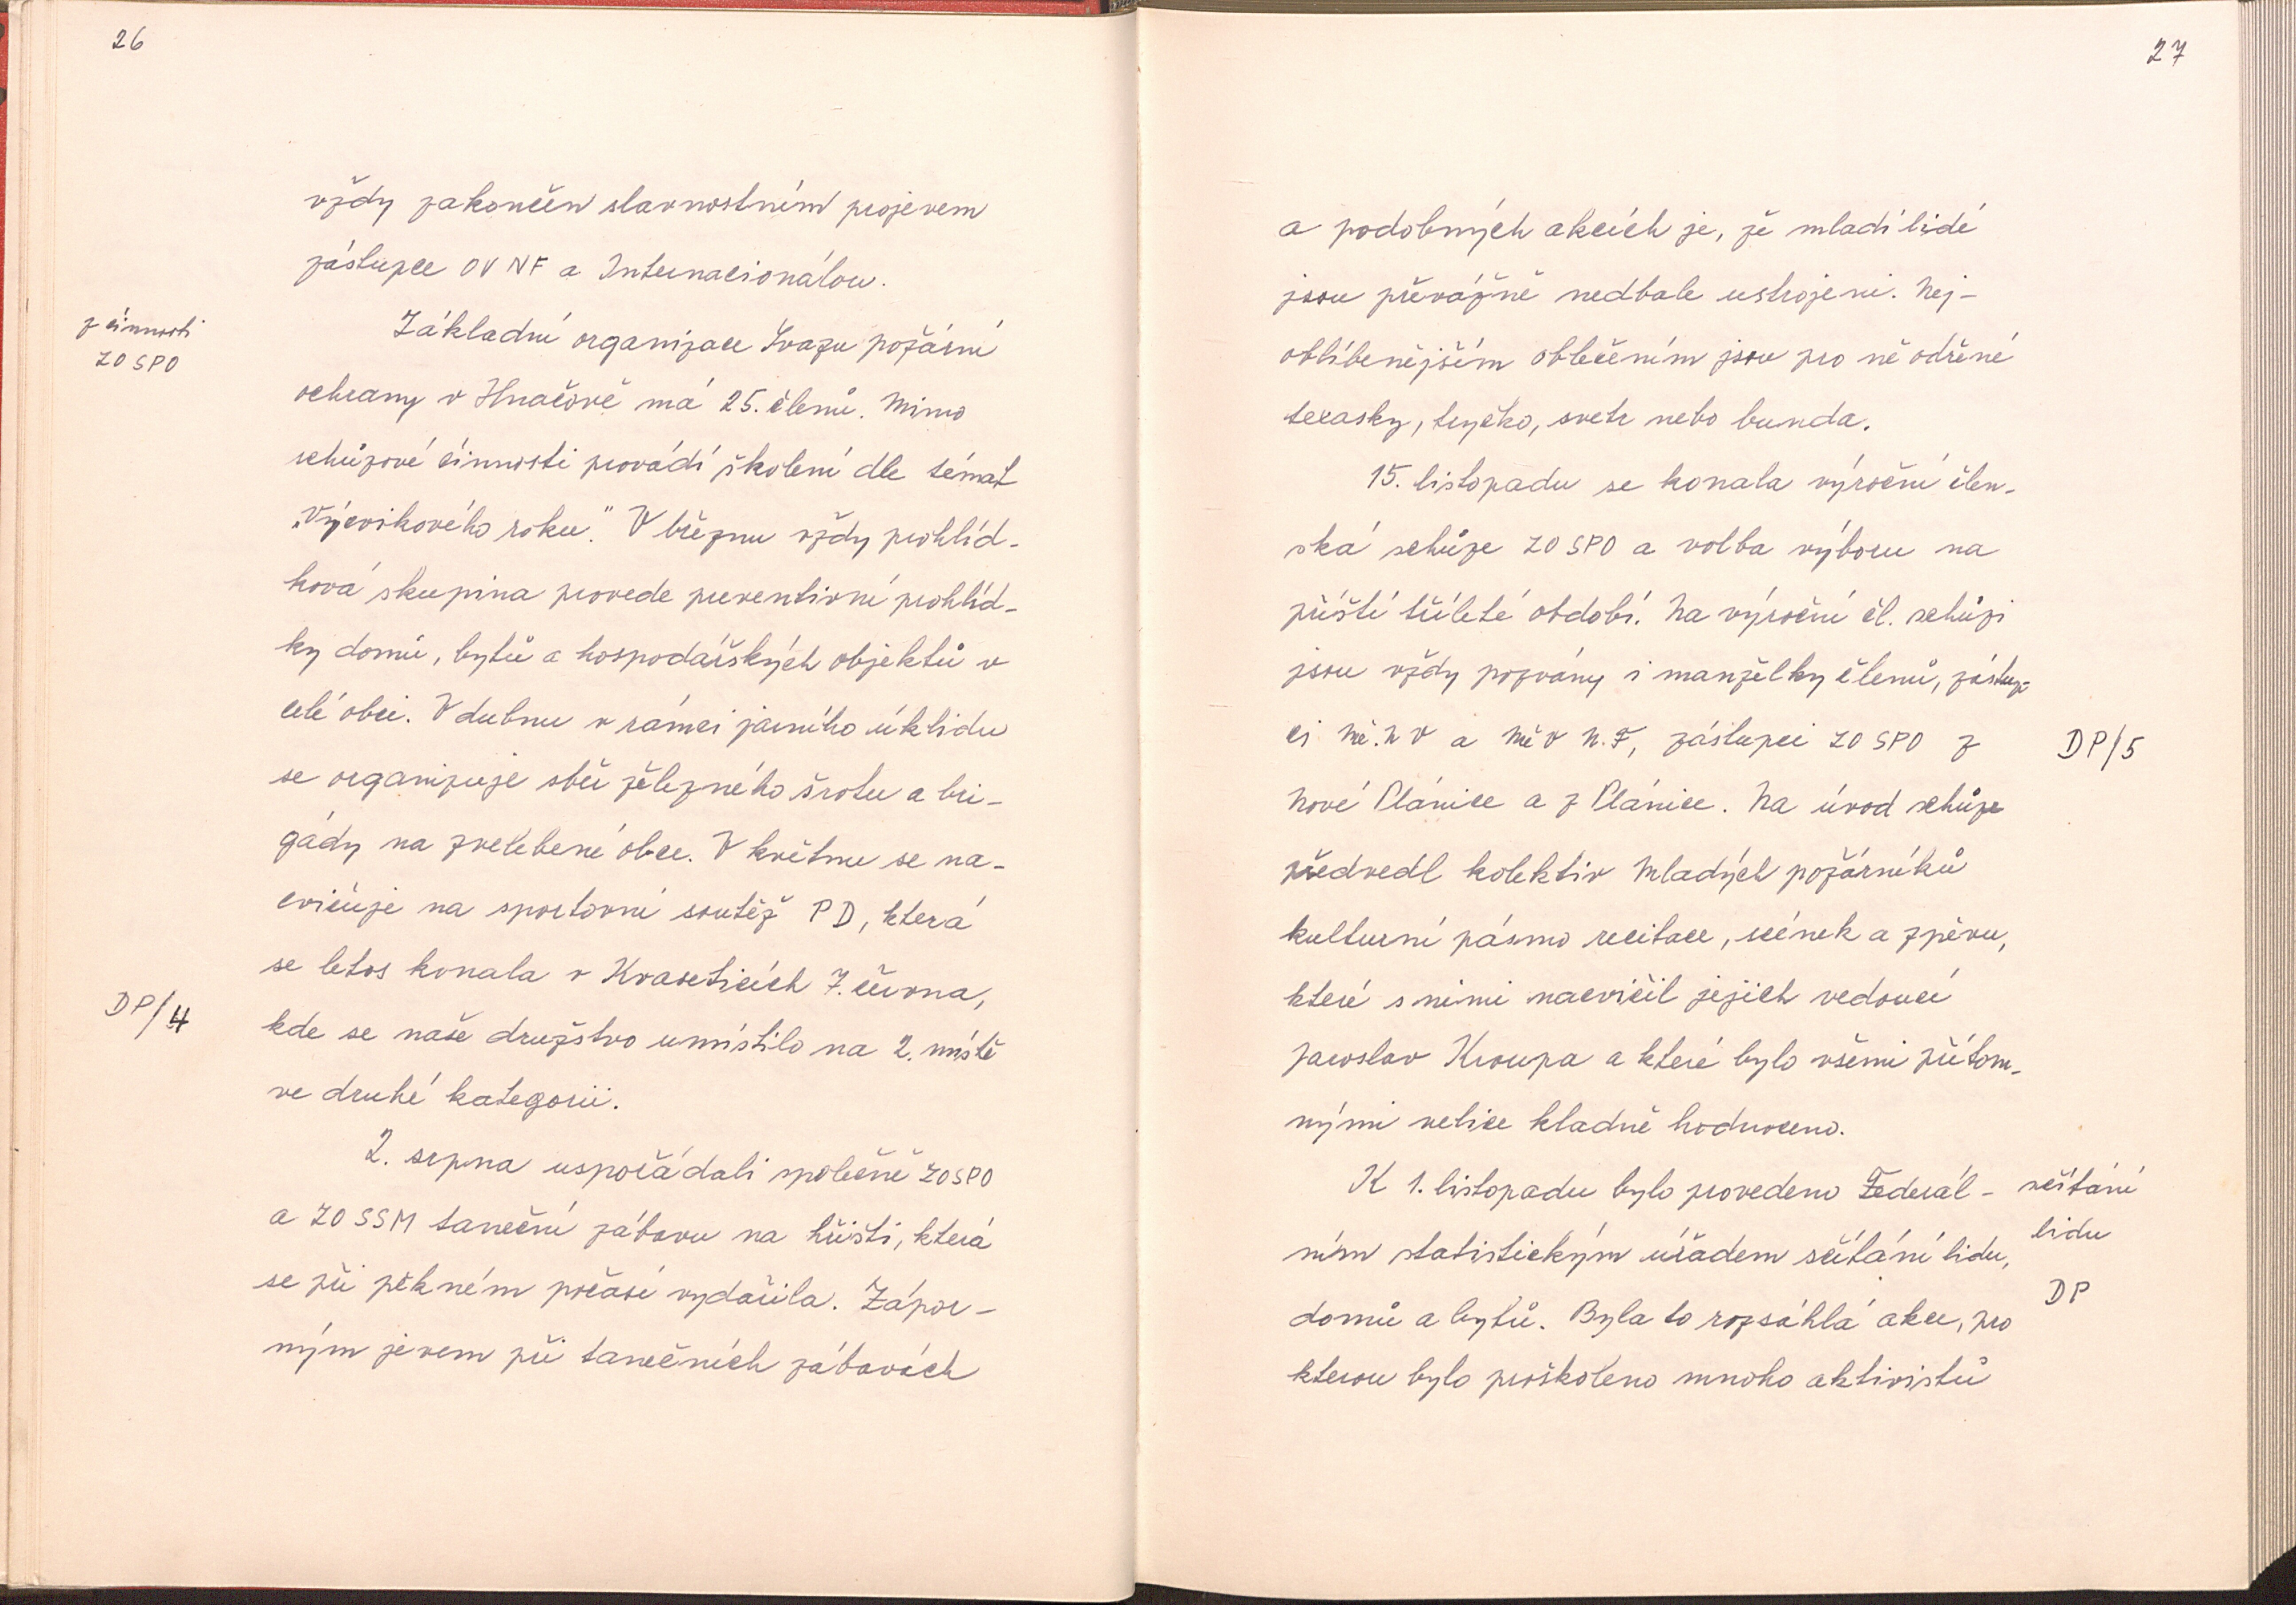 26
vždy zakončen slavnostním projevem
zástupce OV NF a Internacionálou.
z činnosti
ZO SPO
Základní organizace Svazu požární
ochrany v Hnačově má 25. členů. Mimo
schůzové činnosti provádí školení dle témat
„Výcvikového roku." V březnu vždy prohlíd-
ková skupina provede preventivní prohlíd-
ky domů, bytů a hospodářských objektů v
celé obci. V dubnu v rámci jarního úklidu
se organizuje sběr železného šrotu a bri-
gády na zvelebení obce. V květnu se na-
cvičuje na sportovní soutěž PD, která
se letos konala v Kvaseticích 7. června,
DP/4
kde se naše družstvo umístilo na 2. místě
ve druhé kategorii.
2. srpna uspořádali společně ZOSPO
a ZO SSM taneční zábavu na hřišti, která
se při pěkném počasí vydařila. Zápor-
ným jevem při tanečních zábavách
27
a podobných akcích je, že mladí lidé
jsou převážně nedbale ustrojeni. Nej-
oblíbenějším oblečením jsou pro ně odřené
texasky, tryčko, svetr nebo bunda.
15. listopadu se konala výroční člen-
ská schůze ZO SPO a volba výboru na
příští tříleté období. Na výroční čl. schůzi
jsou vždy pozvány i manželky členů, zástup-
ci Mě.N V a MěV N.F, zástupci ZO SPO z
DP/5
Nové Plánice a z Plánice. Na úvod schůze
předvedl kolektiv Mladých požárníků
kulturní pásmo recitace, scének a zpěvu,
které s nimi nacvičil jejich vedoucí
Jaroslav Kroupa a které bylo všemi přítom-
nými velice kladně hodnoceno.
K 1. listopadu bylo provedeno Federál-
sčítání
lidu
ním statistickým úřadem sčítání lidu,
DP
domů a bytů. Byla to rozsáhlá akce, pro
kterou bylo proškoleno mnoho aktivistů